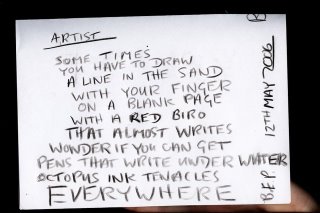 ARTIST
SOME TIMES
YOU HAVE TO DRAW
A LINE IN THE SAND
WITH YOUR FINGER
ON A BLANK PAGE
WITH A RED BIRO
THAT ALMOST WRITES
WONDER IF YOU CAN GET
PENS THAT WRITE UNDER WATER
OCTOPUS INK TENACLES
EVERYWHERE
B.E.P. 12TH MAY 2006